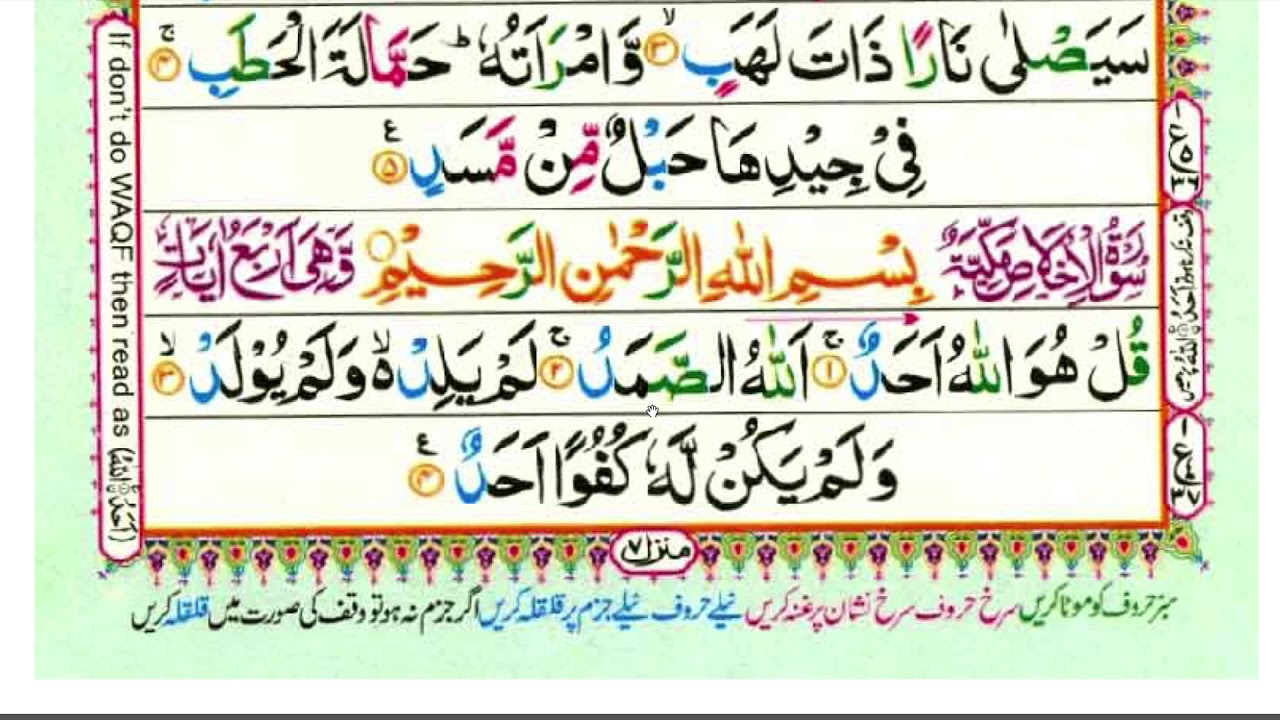 سَيَصْلٰى نَارًا ذَاتَ لَهَبٍ ۙ﴿۳﴾ وَّامْرَاَتُهٗ ؕ حَمَّالَةَ الْحَطَبِ ۚ﴿۴﴾
فِىْ جِيْدِهَا حَبْلٌ مِّنْ مَّسَدٍ ﴿۵﴾ ع
سُوْرَةُ الْاِخْلَاصِ مَكِّيَّةٌ بِسْمِ اللّٰهِ الرَّحْمٰنِ الرَّحِيْمِ وَّهِىَ اَرْبَعُ اٰيَاتٍ
قُلْ هُوَ اللّٰهُ اَحَدٌ ۚ﴿۱﴾ اَللّٰهُ الصَّمَدُ ۚ﴿۲﴾ لَمْ يَلِدْ ۙ۬ وَلَمْ يُوْلَدْ ۙ﴿۳﴾
وَلَمْ يَكُنْ لَّهٗ كُفُوًا اَحَدٌ ﴿۴﴾ ع
منزل ۷
سبز حروف کو موٹا کریں سرخ حروف سرخ نشان پر غنہ کریں نیلے حروف نیلے جزم پر قلقلہ کریں اگر جزم نہ ہو تو وقف کی صورت میں قلقلہ کریں
If don't do WAQF then read as